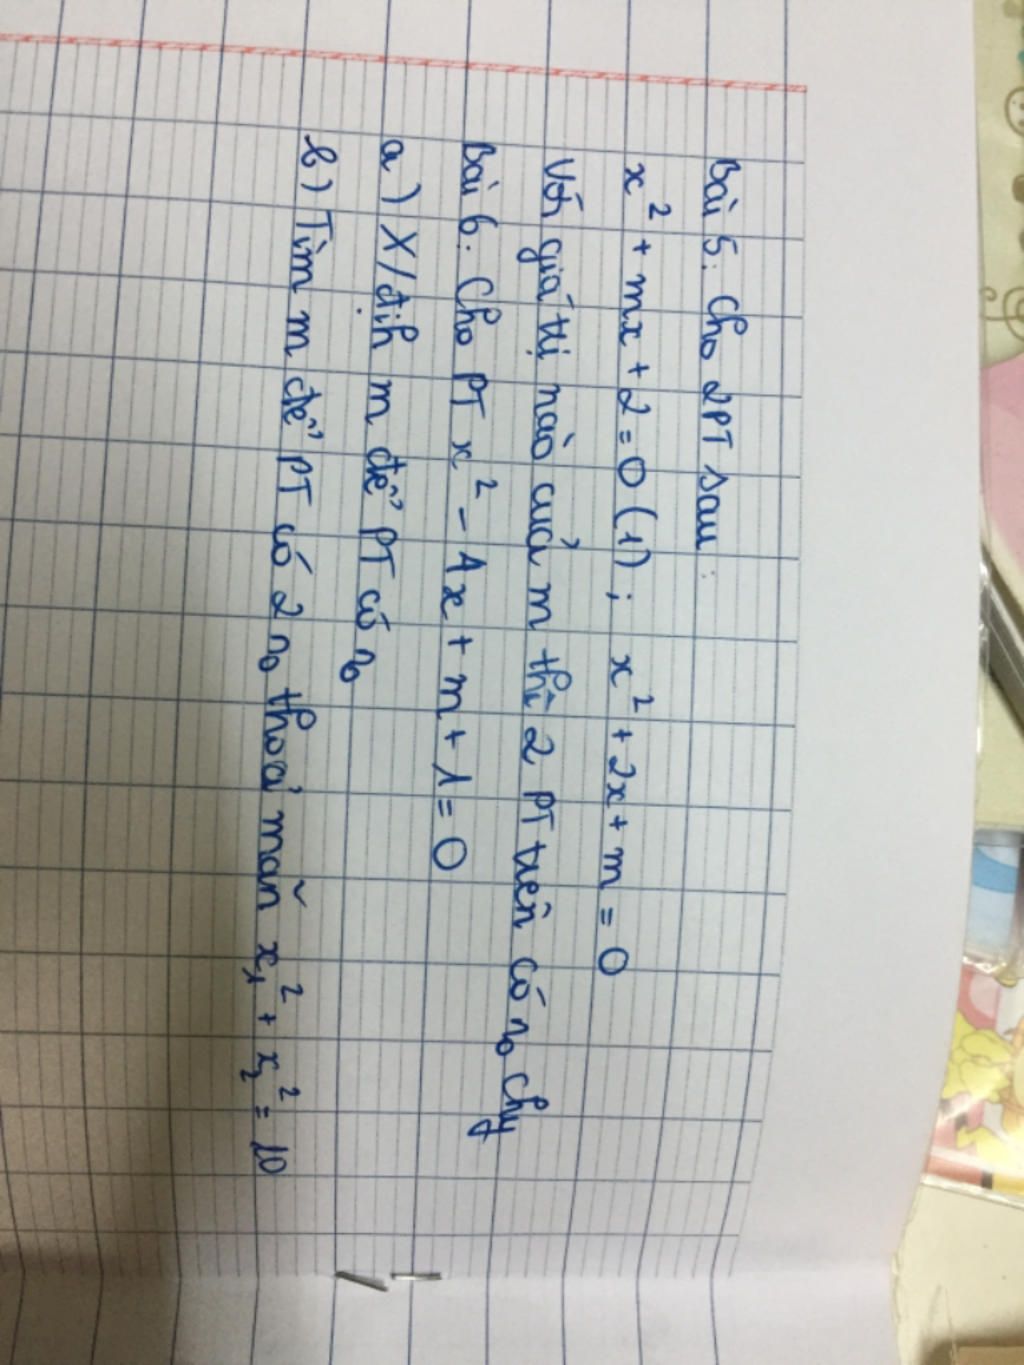 Bài 5: Cho 2PT sau:
x² + mx + 2 = 0 (1); x² + 2x + m = 0
Với giá trị nào của m thì 2 PT trên có n₀ chg
Bài 6: Cho PT x² - 4x + m + 1 = 0
a) X/định m để PT có n₀
b) Tìm m để PT có 2 n₀ thoả mãn x₁² + x₂² = 10